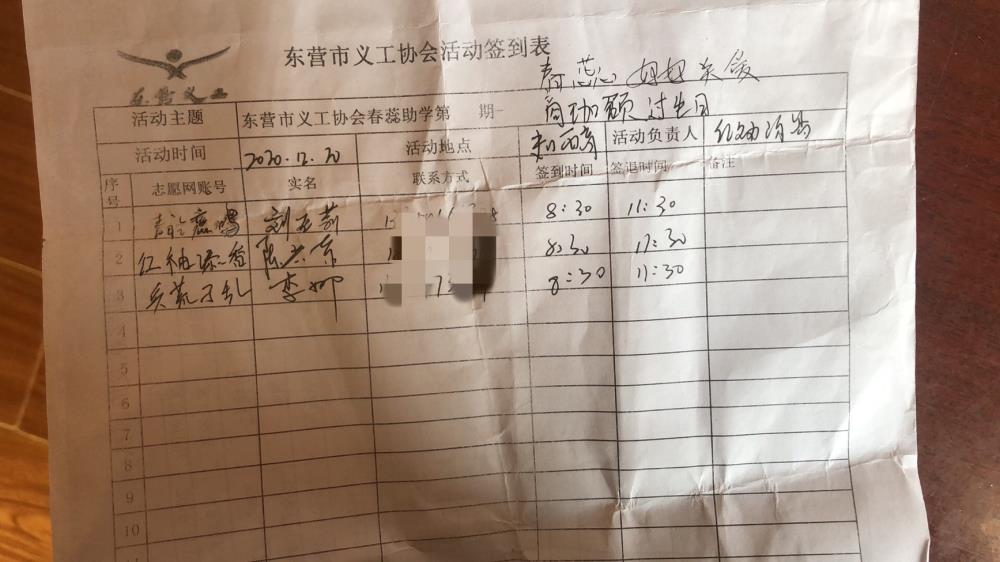 东营市义工协会活动签到表
东营义工
春蕊 妞妞关爱
活动主题 东营市义工协会春蕊助学第 期
过生日
活动时间 2020.12.20 活动地点 活动负责人 红袖添香
序号 志愿网账号 实名 联系方式 签到时间 签退时间 备注
1 鹿鸣 8:30 11:30
2 红袖添香 8:30 11:30
3 兵荒马乱 李娜 8:30 11:30
4
5
6
7
8
9
10